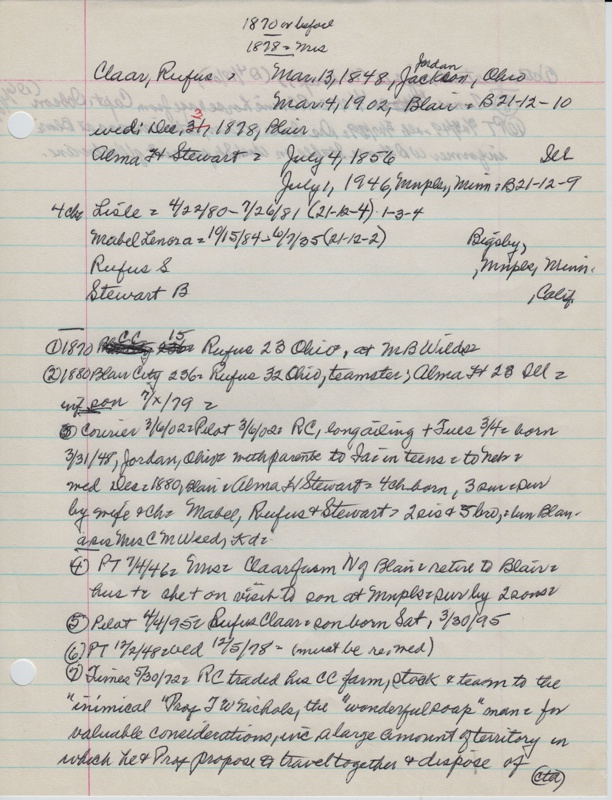 1870 or before
1878 = Mrs
Claar, Rufus = Mar. 13, 1848, Jackson, Ohio
Jordan
Mar 4, 1902, Blair = B21-12-10
wed: Dec, 31, 1878, Blair
Alma H Stewart = July 4, 1856 Ill
July 1, 1946, Mnpls, Minn = B21-12-9
4 ch = Lisle = 4/22/80 - 7/26/81 (21-12-4) 1-3-4
Mabel Lenora = 1/15/84 - 6/7/35 (21-12-2) Bigsby,
Rufus S , Mnpls, Minn.
Stewart B , Calif
① 1870 CC 15 Rufus 23 Ohio, at M B Wilds
② 1880 Blair City 236 = Rufus 32 Ohio, teamster; Alma H 23 Ill =
inf son 7/x/79 =
③ Courier 3/6/02 = Pilot 3/6/02 = RC, long ailing + Tues 3/4 = born
3/31/48, Jordan, Ohio = with parents to Ia in teens = to Neb =
wed Dec = 1880, Blair = Alma H Stewart = 4 ch born, 3 sur = sur
by wife & ch = Mabel, Rufus & Stewart = 2 sis & 5 bro, = bur Blair
a sis Mrs C M Weed,
④ PT 7/4/46 = Mrs = Claar farm N of Blair = retire to Blair =
hus + = she + on visit to son at Mnpls = sur by 2 sons =
⑤ Pilot 4/4/95 = Rufus Claar = son born Sat, 3/30/95
⑥ PT 12/2/48 = wed 12/5/78 = (must be re, wed)
⑦ Times 5/30/72 = RC traded his CC farm, stock & team to the
"inimical" Prof T W Nichols, the "wonderful soap" man = for
valuable considerations, inc a large amount of territory in
which he & Prof propose to travel together & dispose of
(ctd)